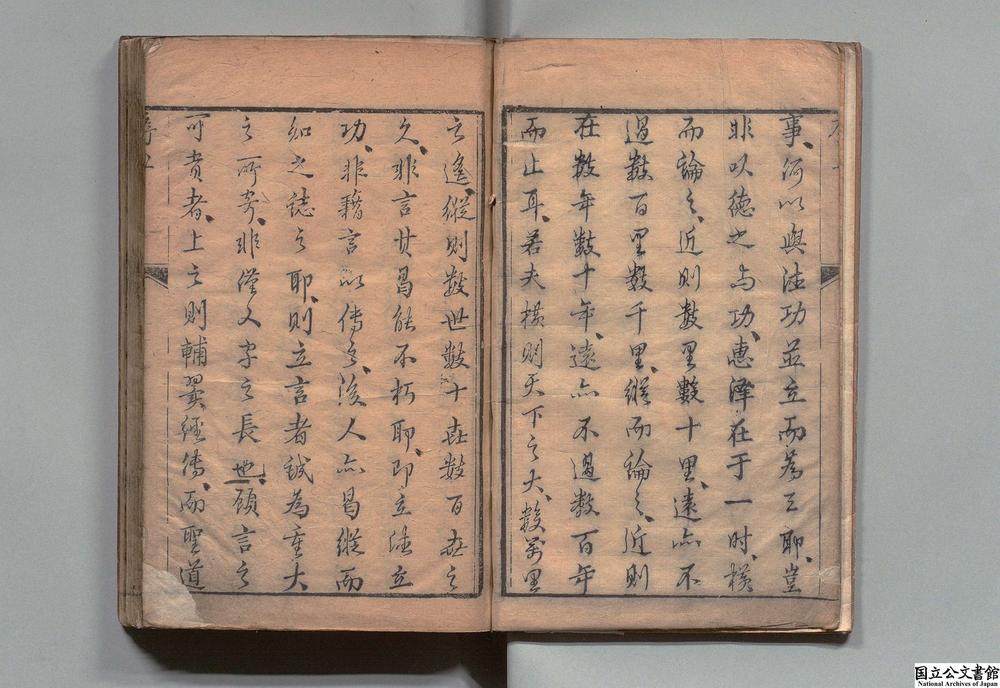 事何以與德功並立而為三耶豈
非以德之与功惠澤在于一時橫
而論之近則數里數十里遠亦不
過數百里數千里縱而論之近則
在數年數十年遠亦不過數百年
而止耳若夫橫則天下之大數萬里
之遙縱則數世數十世數百世之
久非言其曷能不朽耶即立德立
功非藉言以傳之後人亦曷縱而
知之誌之耶則立言者誠為重大
之所寄非僅文字之長也顧言之
可貴者上之則輔翼經傳而聖道
国立公文書館
National Archives of Japan